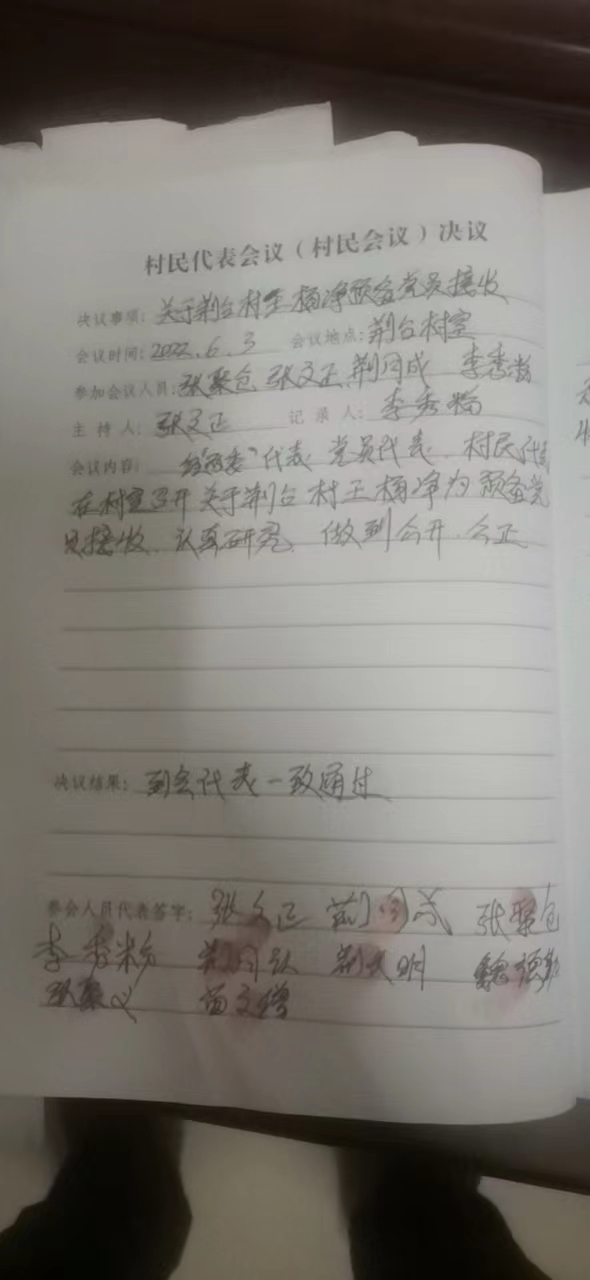 村民代表会议（村民会议）决议
决议事项：关于荆台村王杨净预备党员接收
会议时间：2022.6.3 会议地点：荆台村室
参加会议人员：张聚仓 张文正 荆同成 李秀粉
主持人：张文正 记录人：李秀粉
会议内容： 经"两委"代表 党员代表 村民代表
在村室召开关于荆台村王杨净为预备党
员接收，认真研究，做到公开、公正
决议结果：到会代表一致通过
参会人员代表签字：张文正 荆同成 张聚仓
李秀粉 荆同 荆 明 魏
张聚义 文增